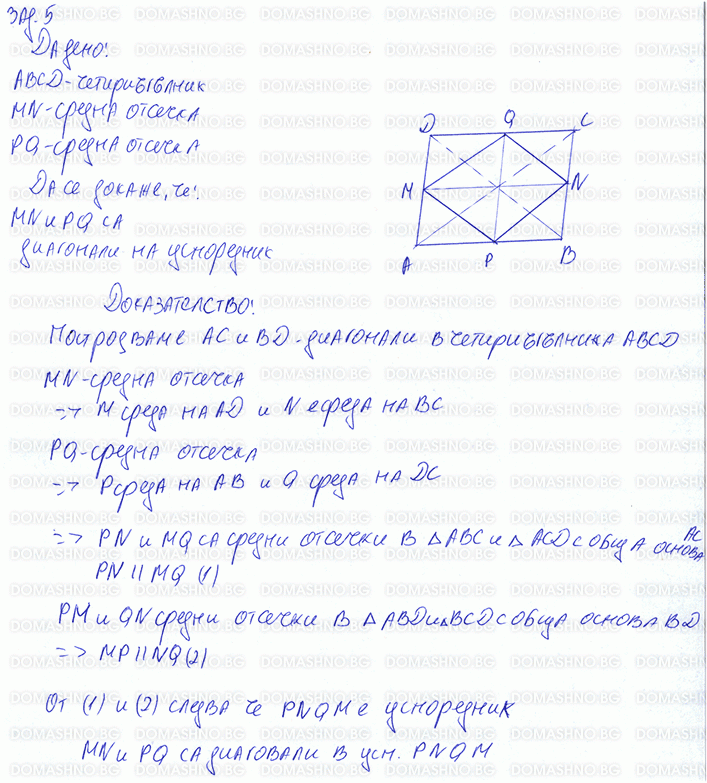 Зад. 5
Дадено:
ABCD - четириъгълник
MN - средна отсечка
PQ - средна отсечка
Да се докаже, че:
MN и PQ са
диагонали на успоредник
D Q C
M N
A P B
Доказателство:
Построяваме AC и BD - диагонали в четириъгълника ABCD
MN - средна отсечка
=> M среда на AD и N е среда на BC
PQ - средна отсечка
=> P среда на AB и Q среда на DC
=> PN и MQ са средни отсечки в △ABC и △ACD с обща основа AC
PN || MQ (1)
PM и QN средни отсечки в △ABD и △BCD с обща основа BD
=> MP || NQ (2)
От (1) и (2) следва че PNQM е успоредник
MN и PQ са диаговали в усп. PNQM
DOMASHNO.BG